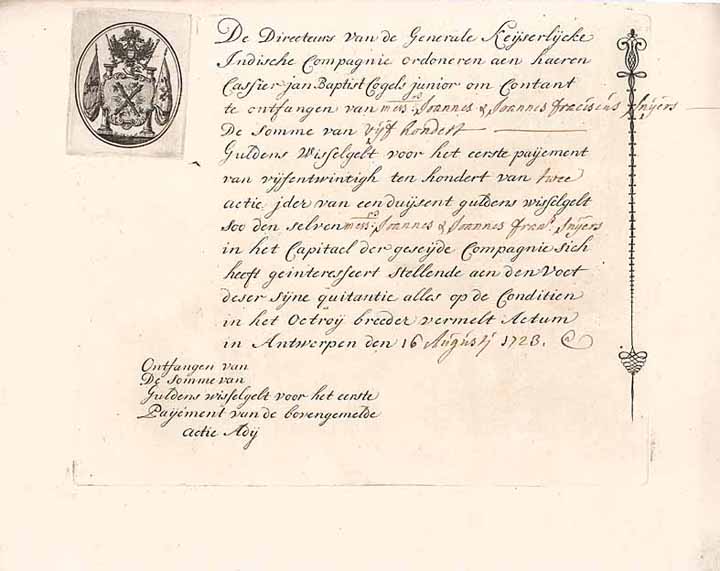 De Directeurs van de Generale Keijserlijcke
Indische Compagnie ordoneren aen haeren
Cassier jan Baptist Cogels junior om Contant
te ontfangen van mess:rs Joannes & Joannes franciscus Snijers
De somme van vijf hondert
Guldens Wisselgelt voor het eerste paijement
van vijfentwintigh ten hondert van twee
actie jder van een duijsent guldens wisselgelt
soo den selven mess:rs Joannes & Joannes fran:s Snijers
in het Capitael der geseijde Compagnie sich
heeft geinteresseert Stellende aen den Voet
deser sijne quitantie alles op de Conditien
in het Octroij breeder vermelt Actum
in Antwerpen den 16 Augusti 1723.
Ontfangen van
De somme van
Guldens wisselgelt voor het eerste
Paijement van de bovengemelde
actie Adij